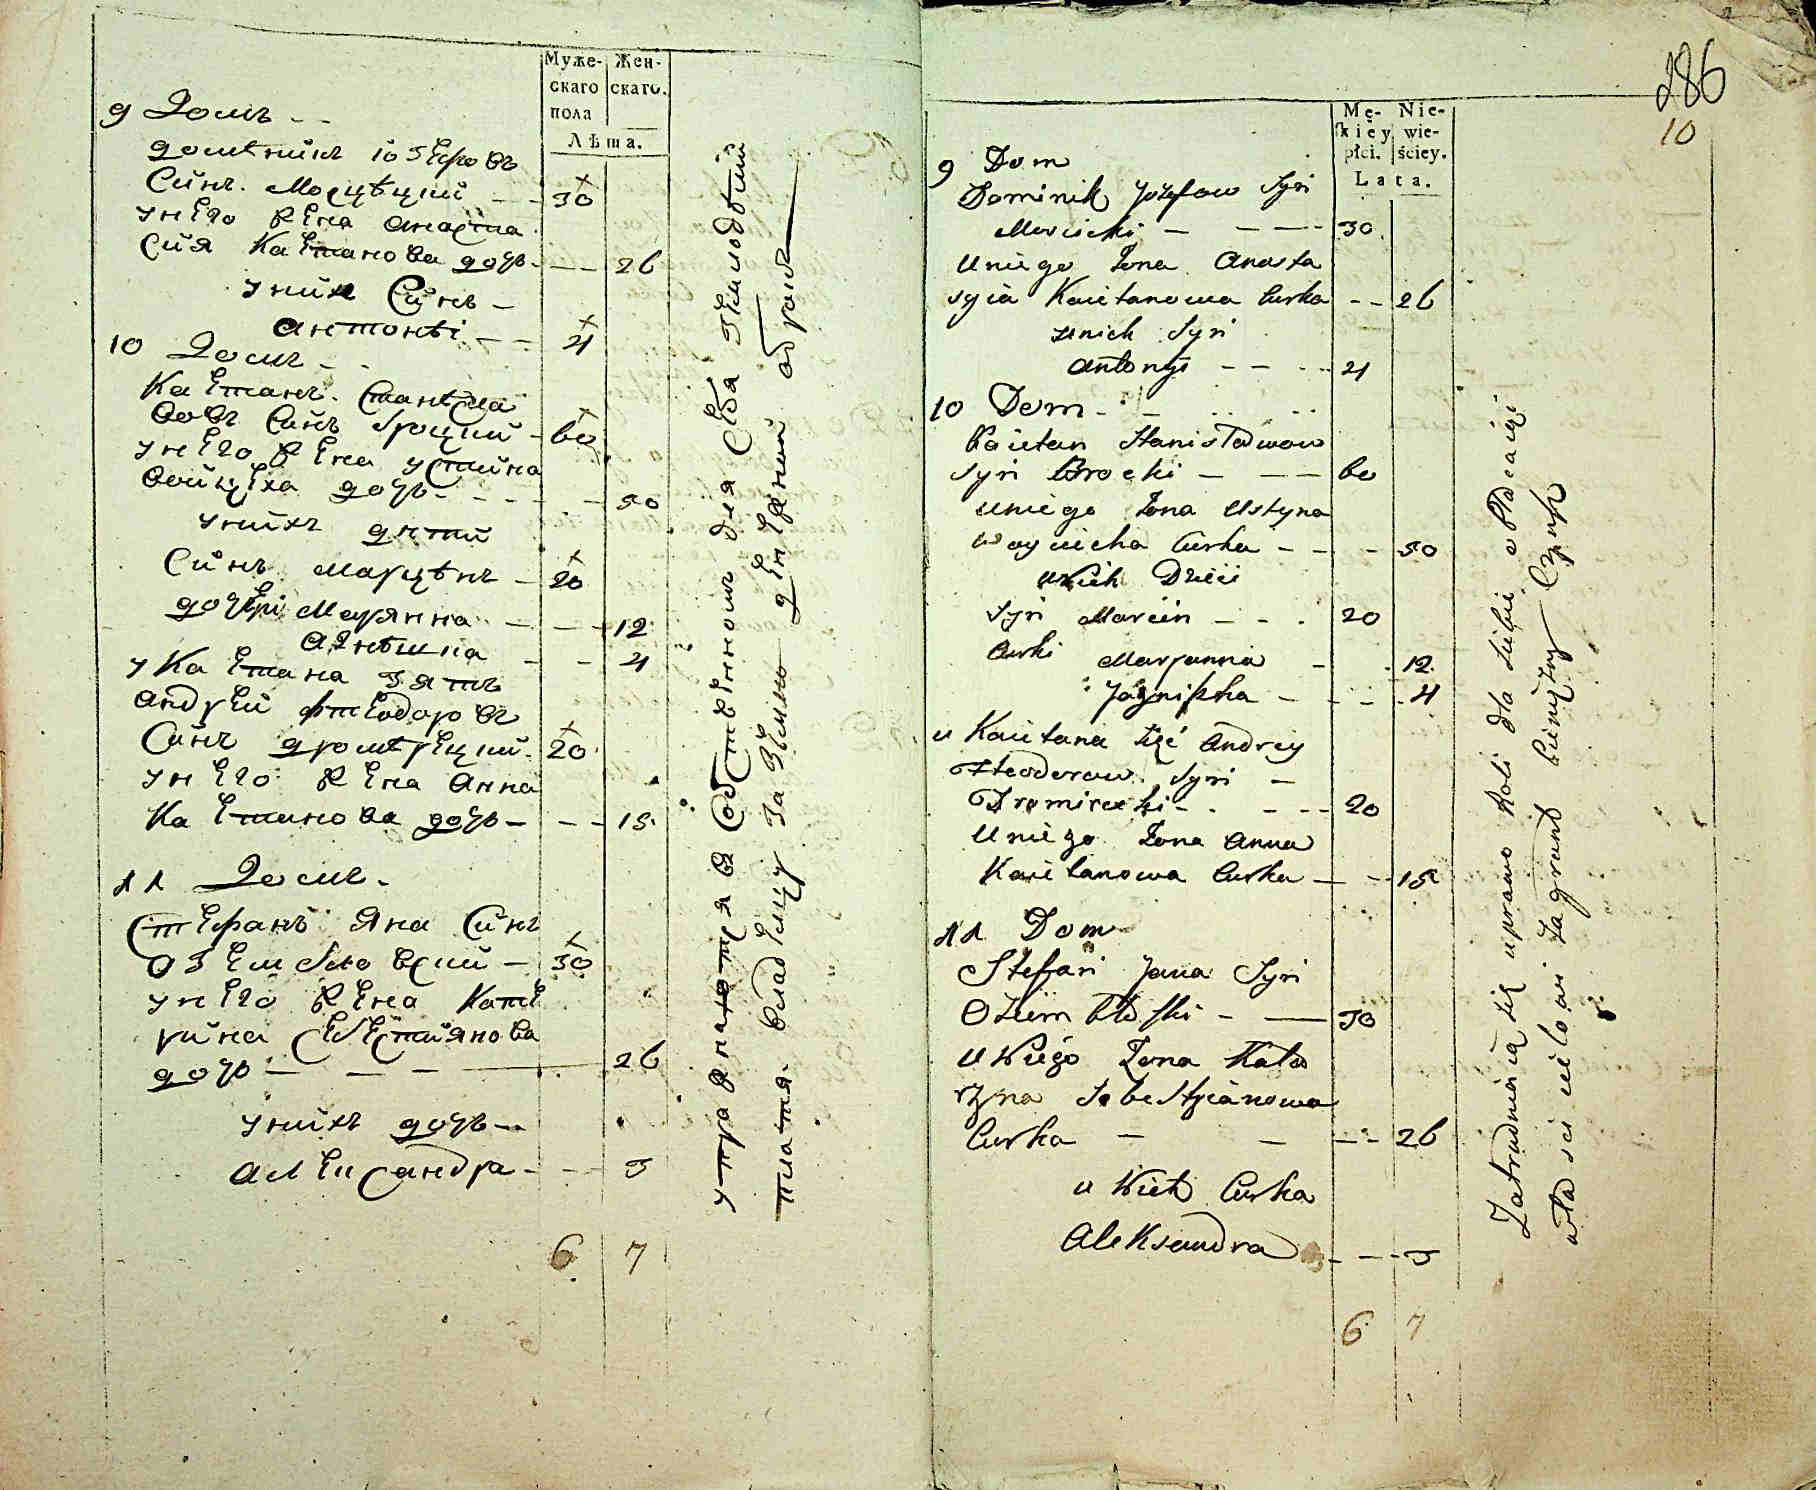 Муже-
скаго
пола
Жен-
скаго.
Лѣта.
9 Домъ - -
доминикъ іозефовъ
Синъ. Морцѣцкий - - 30
унего Жена анаста
сия Каетанова дочь - - - 26
унихъ Синъ -
антонѣі - - - 4
10 Домъ - -
Каетанъ. Станісла
вовъ Синъ Броцкий - 60
унего Жена устина
войцеха дочь - - - - 50
унихъ дѣти
Синъ марцѣнъ - 20
дочері Марянна - - - 12
агнѣшка - - 4
у Каетана зять
андрей фтеодоровъ
Синъ дромірецкий. 20
унего Жена анна
Каетанова дочь - - - 15
11 Домъ -
Стефанъ Яна Синъ
озембловский - 30
унего Жена Кате
рина Себестиянова
дочь - - - 26
унихъ дочь - -
александра - - - 3
6 7
упражнаются в собственномъ для себя землодѣлиі
платя. владелцу за землю денежний оброкъ
286
10
Mę-
skiey
płci.
Nie-
wie-
ściey.
Lata.
9 Dom
Dominik Jozefow Syn
Morcicki - - - - 30
Uniego Zona Anasta
syia Kaietanowa Curka - - 26
unich Syn
Antonyi - - - - 4
10 Dom - -
Kaietan Stanisławow
Syn Brocki - - - 60
Uniego Zona Ustyna
Woyciecha Curka - - - 50
unich Dzieci
Syn Marcin - - - 20
Curki Maryanna - - 12
Jagniszka - - - - 4
u Kaietana Zięć Andrey
Fteodorow Syn -
Dromirecki - - - - 20
Uniego Zona Anna
Kaietanowa Curka - - - 15
11 Dom
Stefan Jana Syn
Oziembłoski - - 30
Uniego Zona Kata
rzyna Sebestyianowa
Curka - - - - 26
u nich Curka
Aleksandra - - - 3
6 7
Zatrudniaią się uprawą Roli dla siebie opłacaiąc
właścicielowi za grunt pieniężny Czynsz